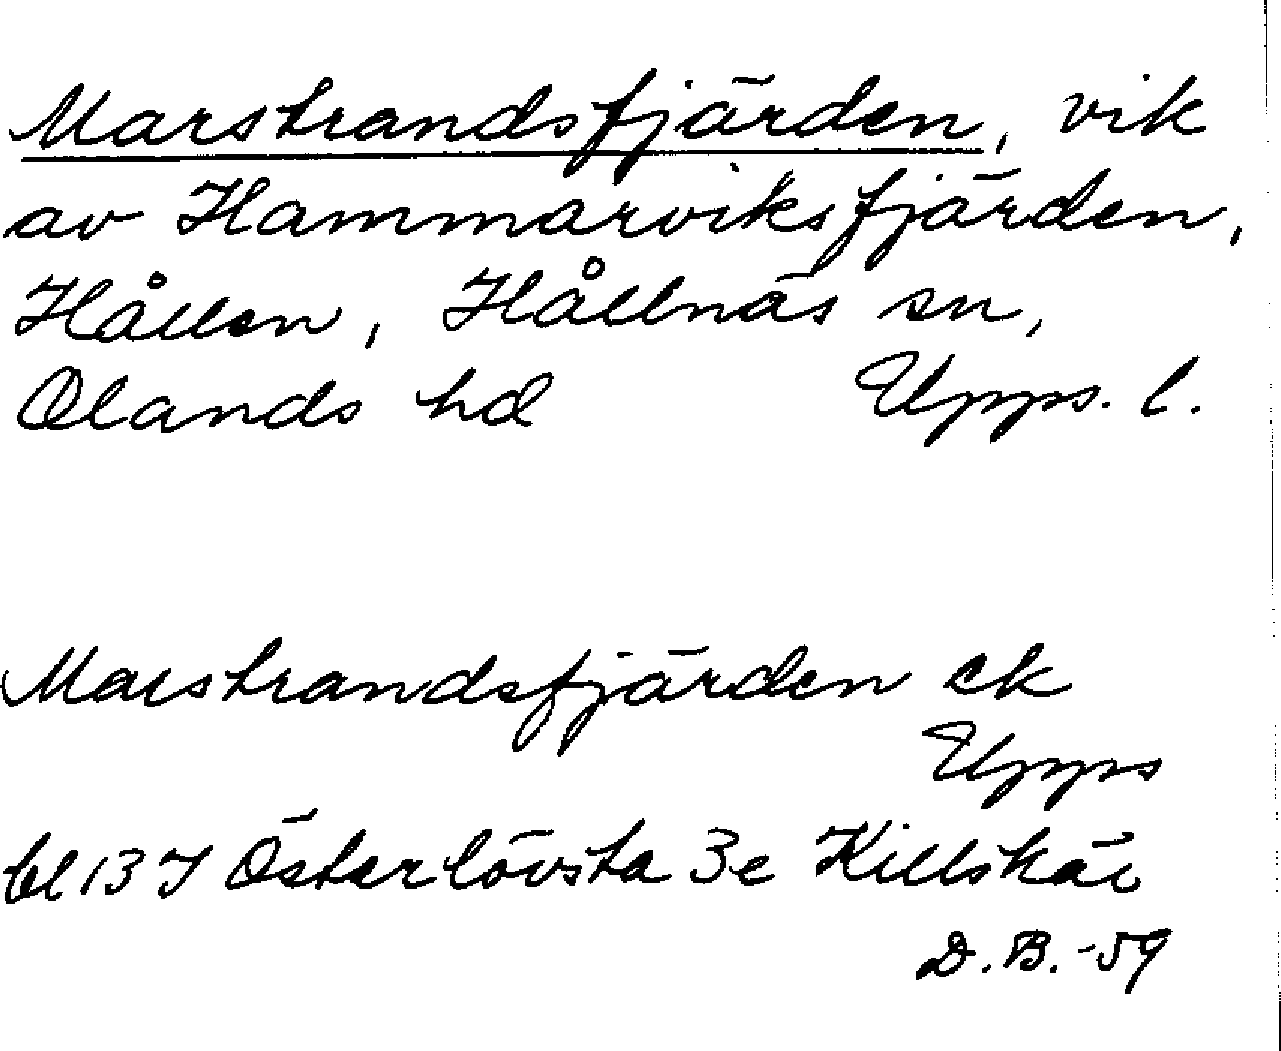 Marstrandsfjärden, vik
av Hammarviksfjärden,
Hållen, Hållnäs sn,
Olands hd Upps. l.
Marstrandsfjärden ek
Upps
bl 13 I Österlövsta 3e Killskär
D.B. -59